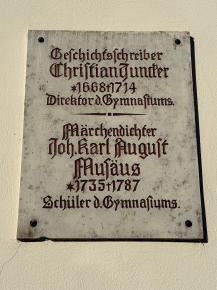 Geschichtsschreiber
Christian Juncker
*1668†1714
Direktor d. Gymnasiums.
Märchendichter
Joh. Karl August
Musäus
*1735†1787
Schüler d. Gymnasiums.